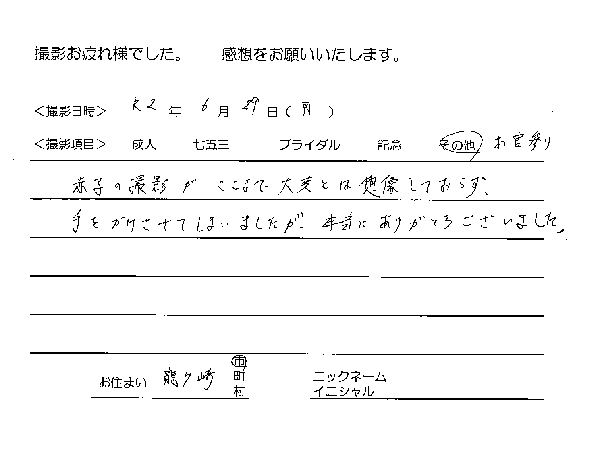 撮影お疲れ様でした。 感想をお願いいたします。
<撮影日時> R2 年 6 月 29 日(月)
<撮影項目> 成人 七五三 ブライダル 記念 その他 お宮参り
赤子の撮影が ここまで大変とは想像しておらず、
手をかけさせてしまいましたが、本当にありがとうございました。
お住まい 龍ヶ崎 市 町 村 ニックネーム イニシャル